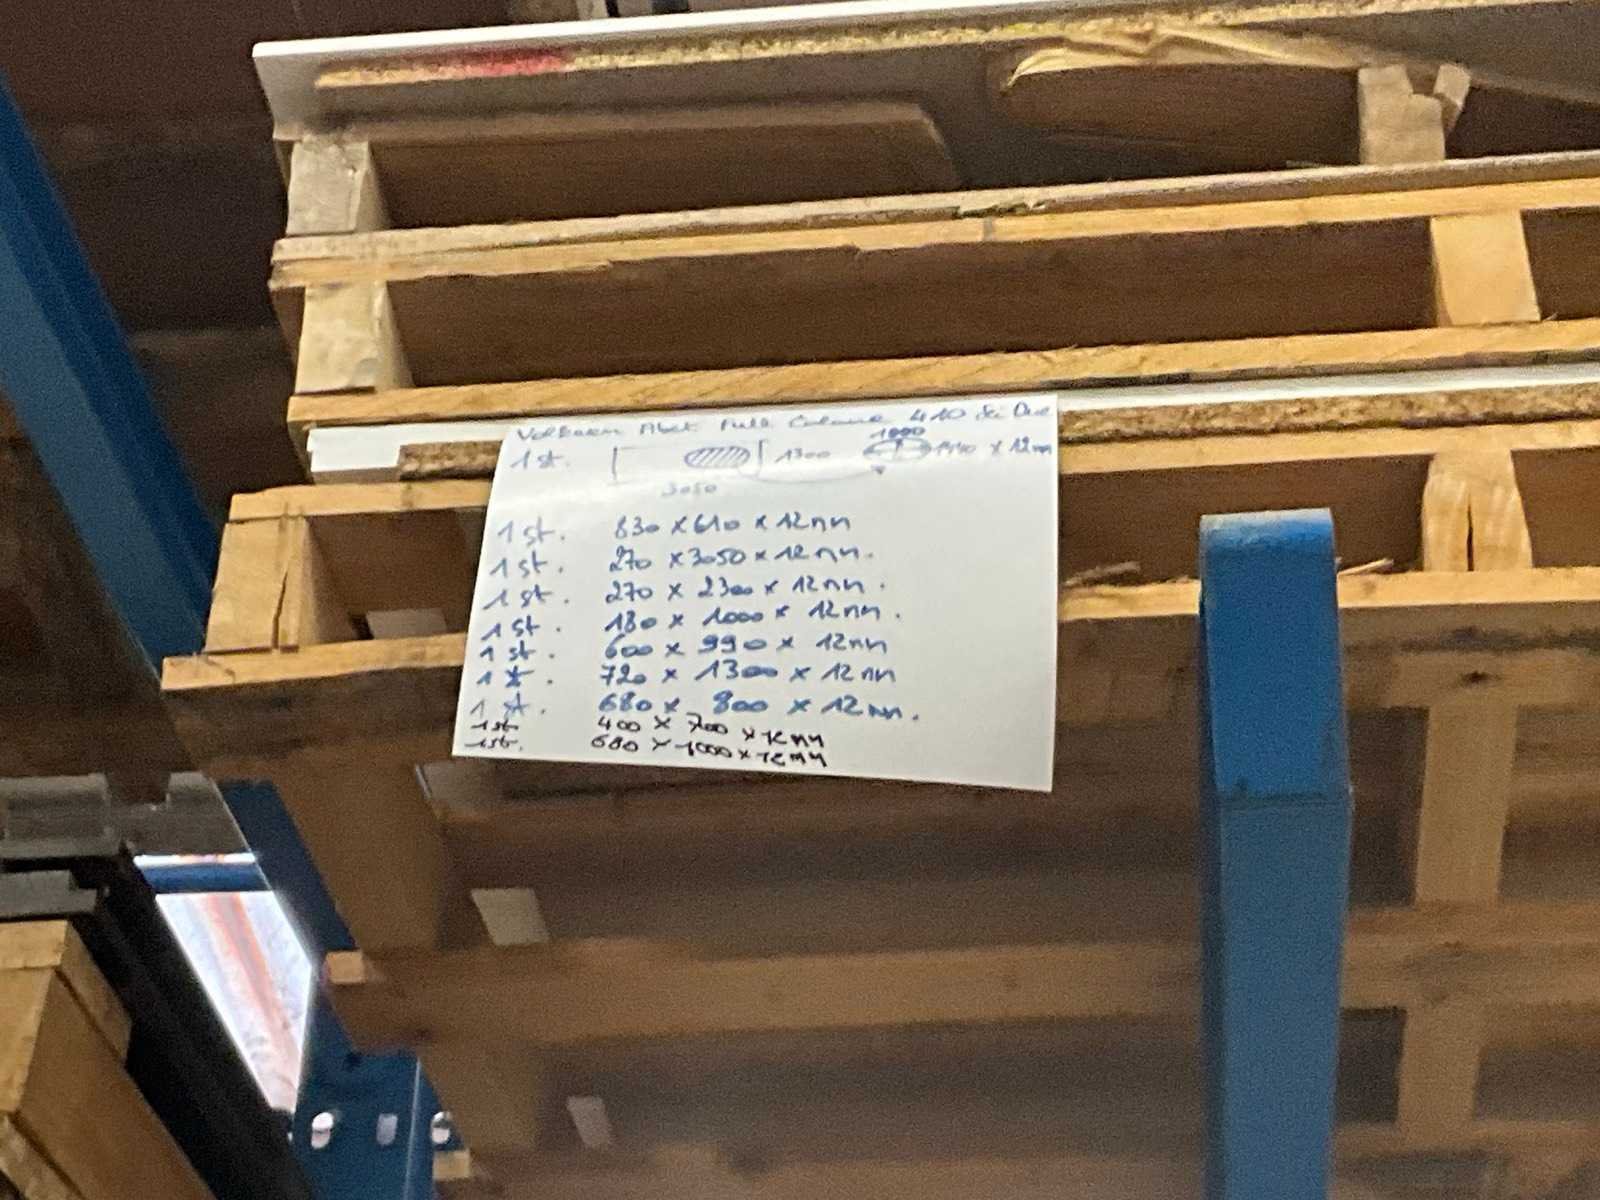 Volkern Abet Full Colour 410 Sei Due
1 st. 3050 1300 1000 x 12mm
1 st. 830 x 610 x 12mm
1 st. 270 x 3050 x 12mm.
1 st. 270 x 2300 x 12mm.
1 st. 180 x 1000 x 12mm.
1 st. 600 x 990 x 12mm
1 st. 720 x 1300 x 12mm
1 st. 680 x 800 x 12mm.
1st 400 x 700 x 12mm
1st. 680 x 1000 x 12mm